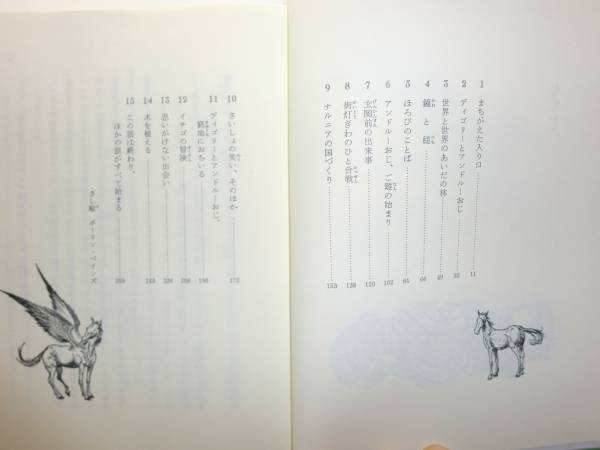 1 まちがえた入り口 11
2 ディゴリーとアンドルーおじ 32
3 世界と世界のあいだの林 49
4 鐘と槌 66
5 ほろびのことば 84
6 アンドルーおじ、ご難の始まり 102
7 玄関前の出来事 120
8 街灯ぎわのひと合戦 138
9 ナルニアの国づくり 153
10 さいしょの笑い、そのほか 172
11 ディゴリーとアンドルーおじ、
窮地におちいる 190
12 イチゴの冒険 208
13 思いがけない出会い 226
14 木を植える 243
15 この話は終わり、
ほかの話がすべて始まる 259
さし絵 ポーリン・ベインズ